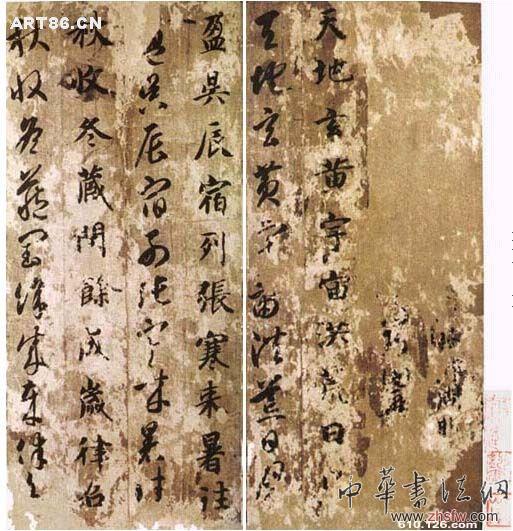 天地玄黄宇宙洪荒日月
天地玄黄宇宙洪荒日月
盈昃辰宿列張寒来暑往
盈昃辰宿列張寒来暑往
秋收冬藏閏餘成歲律吕
秋收冬藏閏餘成歲律吕
ART86.CN
中華書法網
www.zhsfw.com
610.126.com